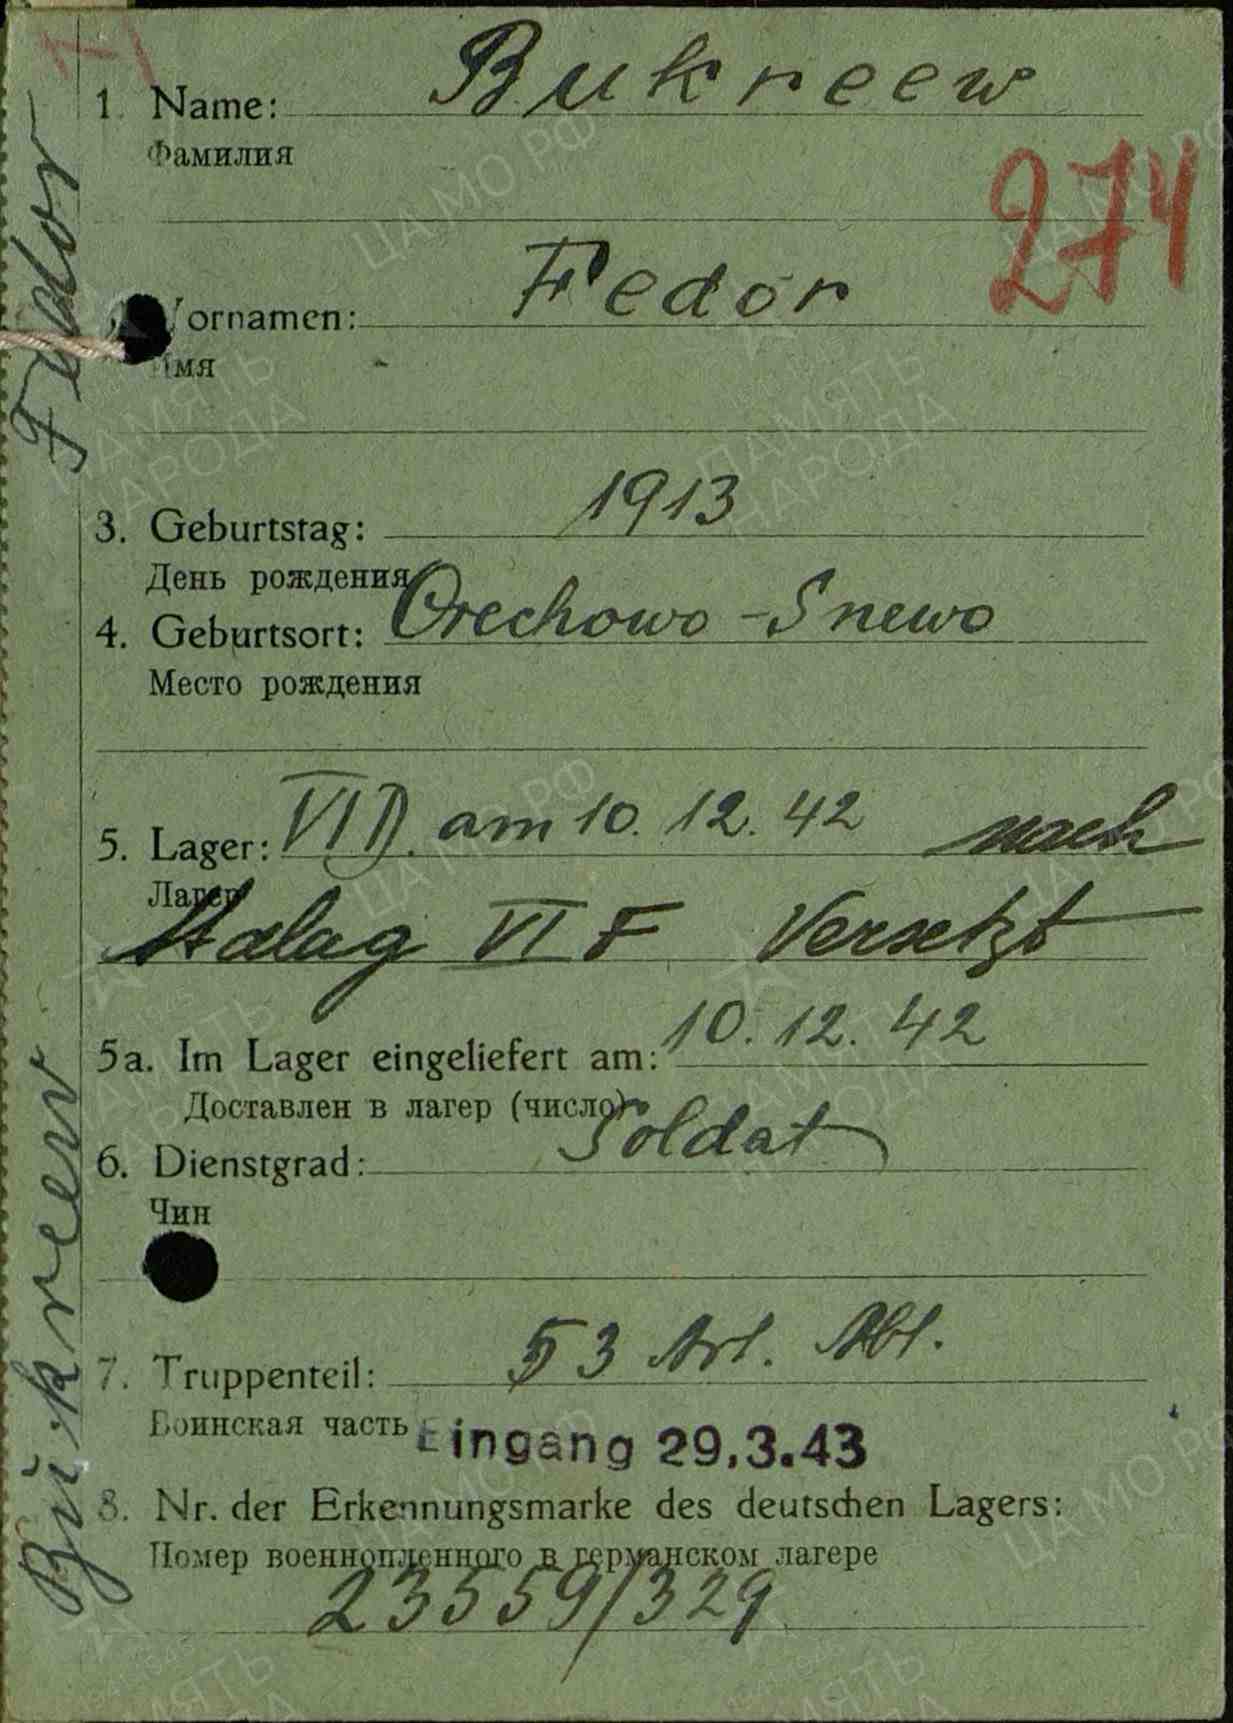 1. Name: Bukreew
Фамилия
274
Vornamen: Fedor
Имя
3. Geburtstag: 1913
День рождения
4. Geburtsort: Orechowo-Snewo
Место рождения
5. Lager: VI D. am 10.12.42 nach
Лагер
Stalag VI F Versetzt
5a. Im Lager eingeliefert am: 10.12.42
Доставлен в лагер (число)
6. Dienstgrad: Soldat
Чин
7. Truppenteil: 53 Art. Abt.
Воинская часть
Eingang 29.3.43
8. Nr. der Erkennungsmarke des deutschen Lagers:
Номер военнопленного в германском лагере
23559/329
Bukreew Fedor
ЦА МО РФ
ПАМЯТЬ НАРОДА